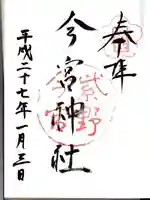 奉拝
今宮神社
平成二十七年一月三日
紫野
今宮